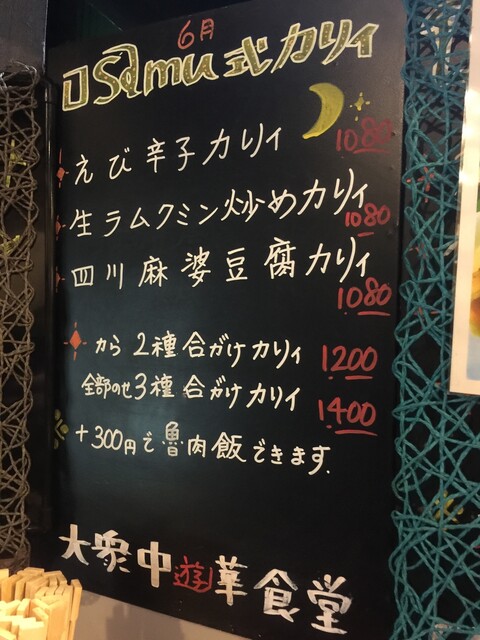 6月
口Samu式カリィ
えび辛子カリィ 1080
生ラムクミン炒めカリィ 1080
四川麻婆豆腐カリィ 1080
から2種合がけカリィ 1200
全部のせ3種合がけカリィ 1400
+300円で魯肉飯できます.
大衆中遊華食堂